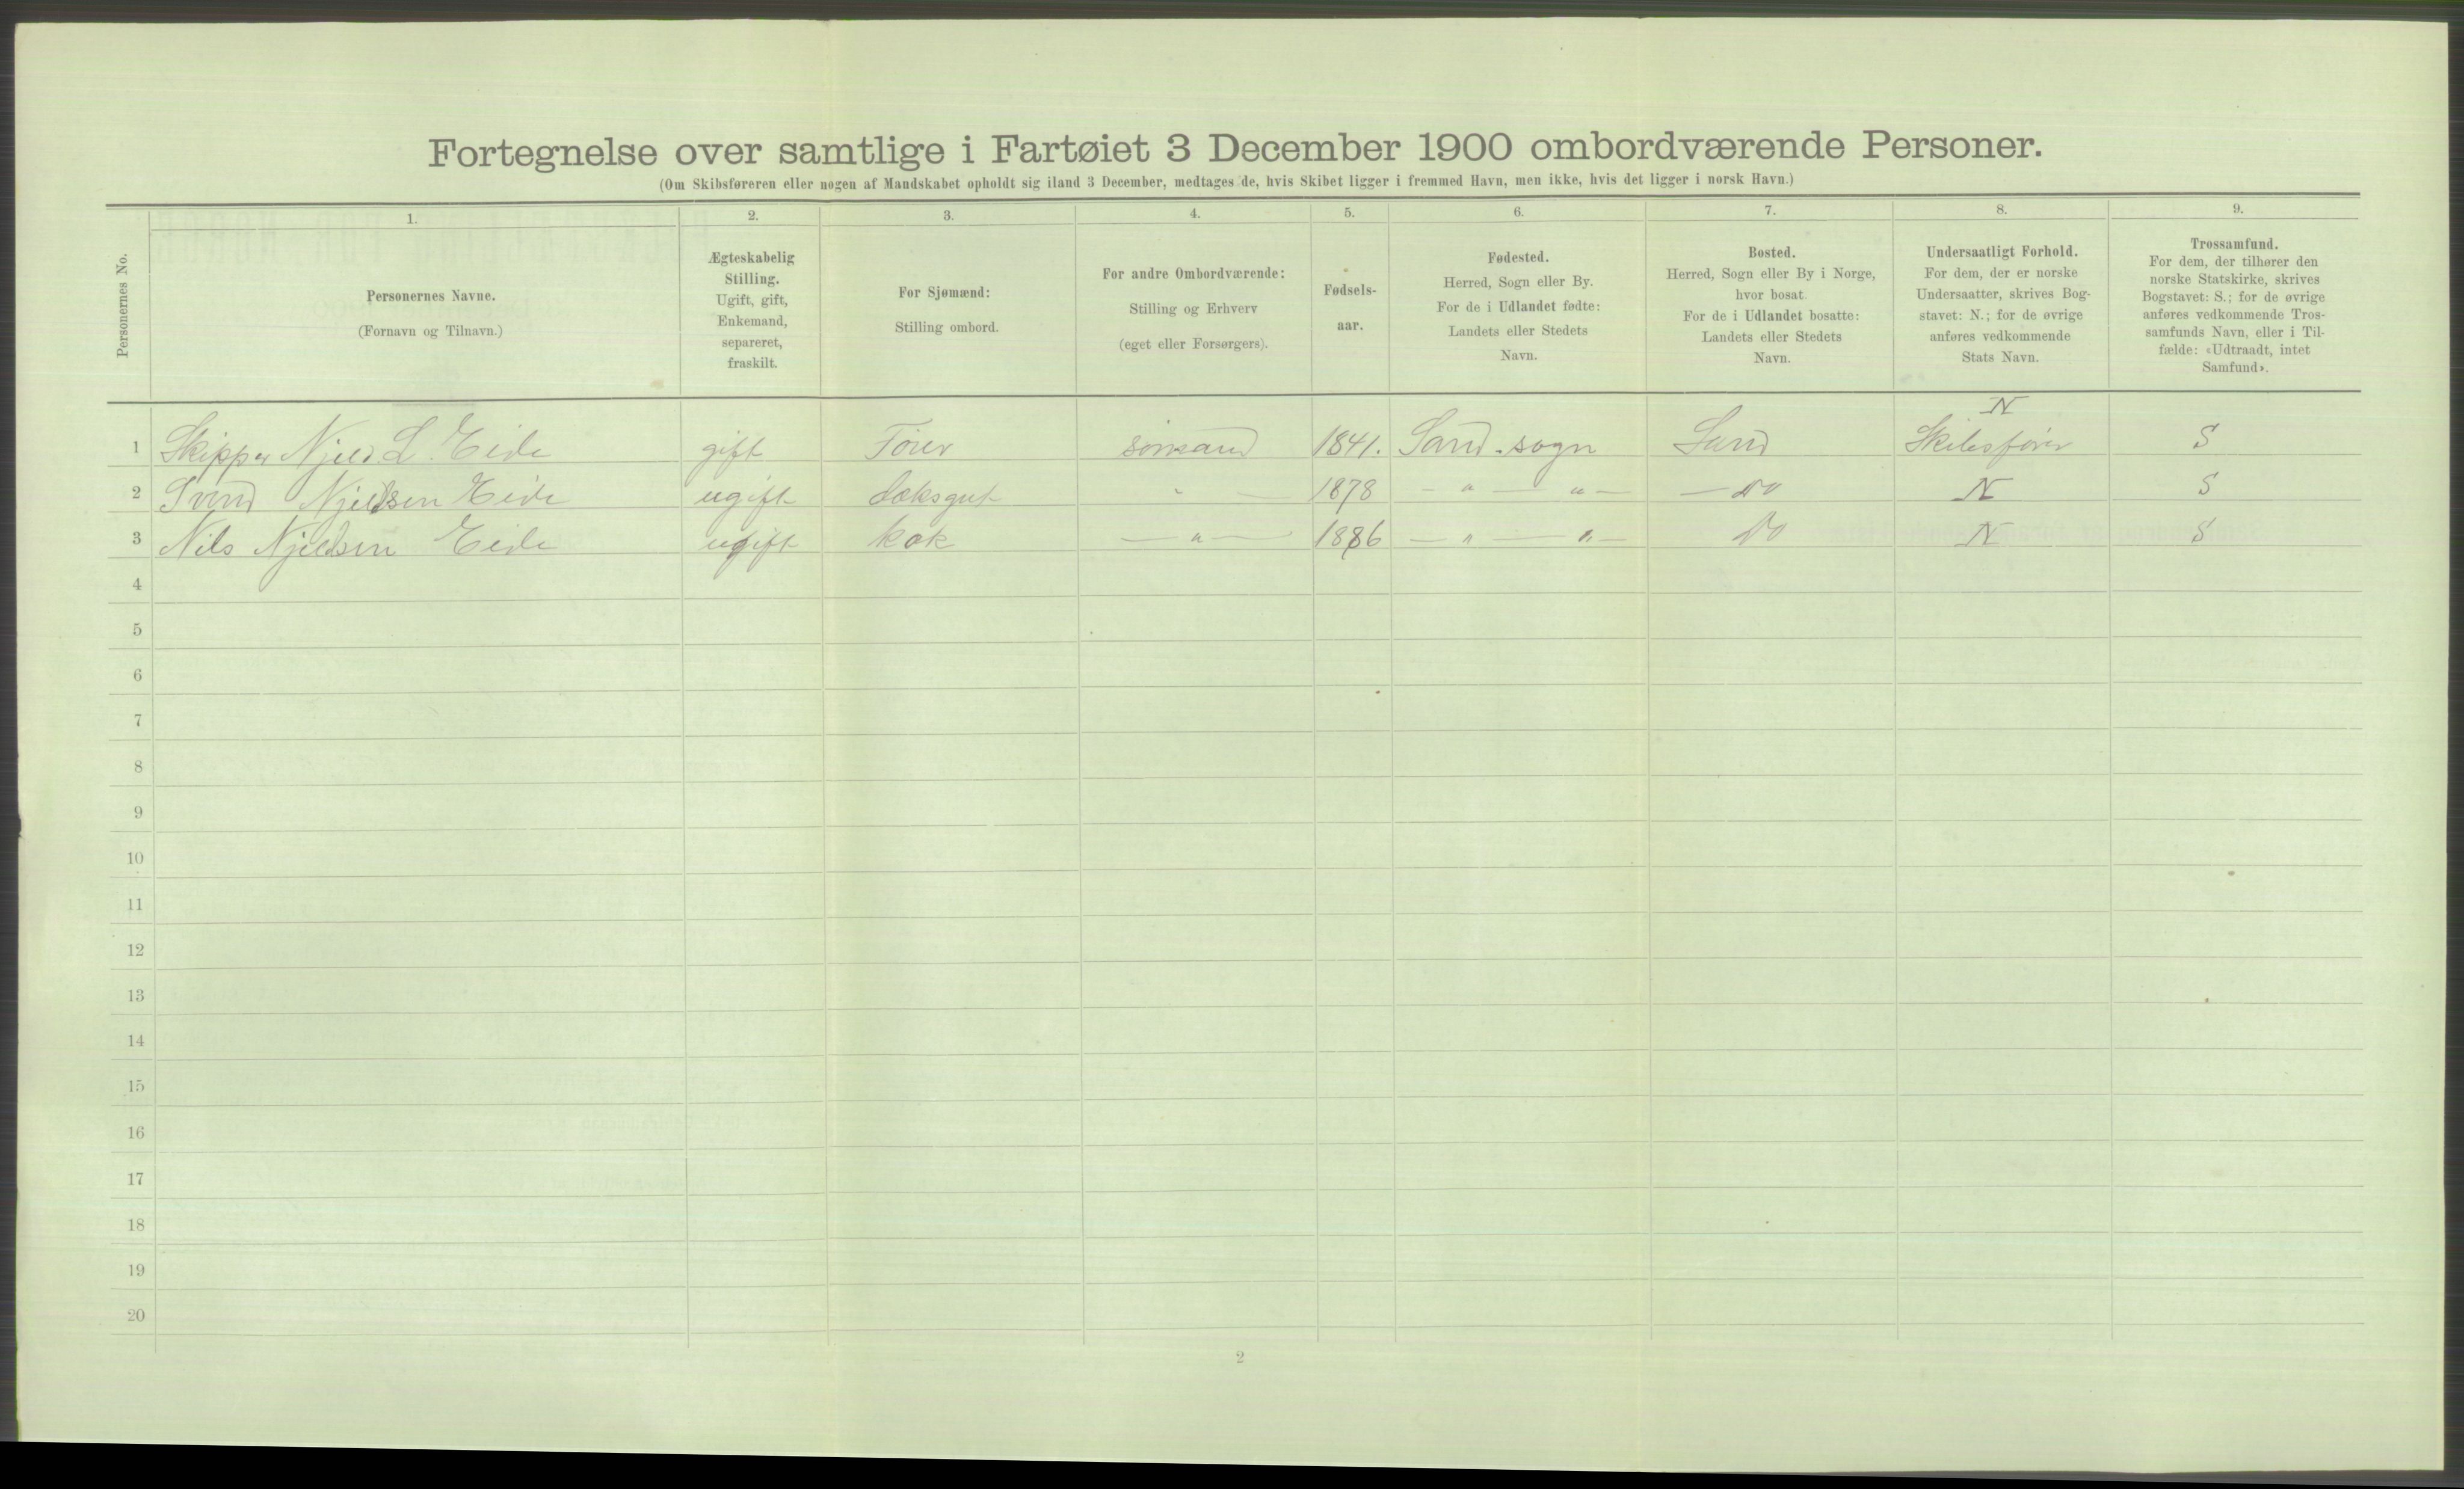 Fortegnelse over samtlige i Fartøiet 3 December 1900 ombordværende Personer.
(Om Skibsføreren eller nogen af Mandskabet opholdt sig iland 3 December, medtages de, hvis Skibet ligger i fremmed Havn, men ikke, hvis det ligger i norsk Havn.)
1. 2. 3. 4. 5. 6. 7. 8. 9.
Personernes No.
Personernes Navne.
(Fornavn og Tilnavn.)
Ægteskabelig
Stilling.
Ugift, gift,
Enkemand,
separeret,
fraskilt.
For Sjømænd:
Stilling ombord.
For andre Ombordværende:
Stilling og Erhverv
(eget eller Forsørgers).
Fødsels-
aar.
Fødested.
Herred, Sogn eller By.
For de i Udlandet fødte:
Landets eller Stedets
Navn.
Bosted.
Herred, Sogn eller By i Norge,
hvor bosat.
For de i Udlandet bosatte:
Landets eller Stedets
Navn.
Undersaatligt Forhold.
For dem, der er norske
Undersaatter, skrives Bog-
stavet: N.; for de øvrige
anføres vedkommende
Stats Navn.
Trossamfund.
For dem, der tilhører den
norske Statskirke, skrives
Bogstavet: S.; for de øvrige
anføres vedkommende Tros-
samfunds Navn, eller i Til-
fælde: «Udtraadt, intet
Samfund».
N
1 Skipper Njeld L. Eide gift Fører 1841. Sand sogn Sand Skibsfører S
2 Svend Njeldsen Eide ugift daksgut " — 1878 — " — " — — do N S
3 Nils Njeldsen Eide ugift kok — " — 1886 — " — " — do N S
4
5
6
7
8
9
10
11
12
13
14
15
16
17
18
19
20
2